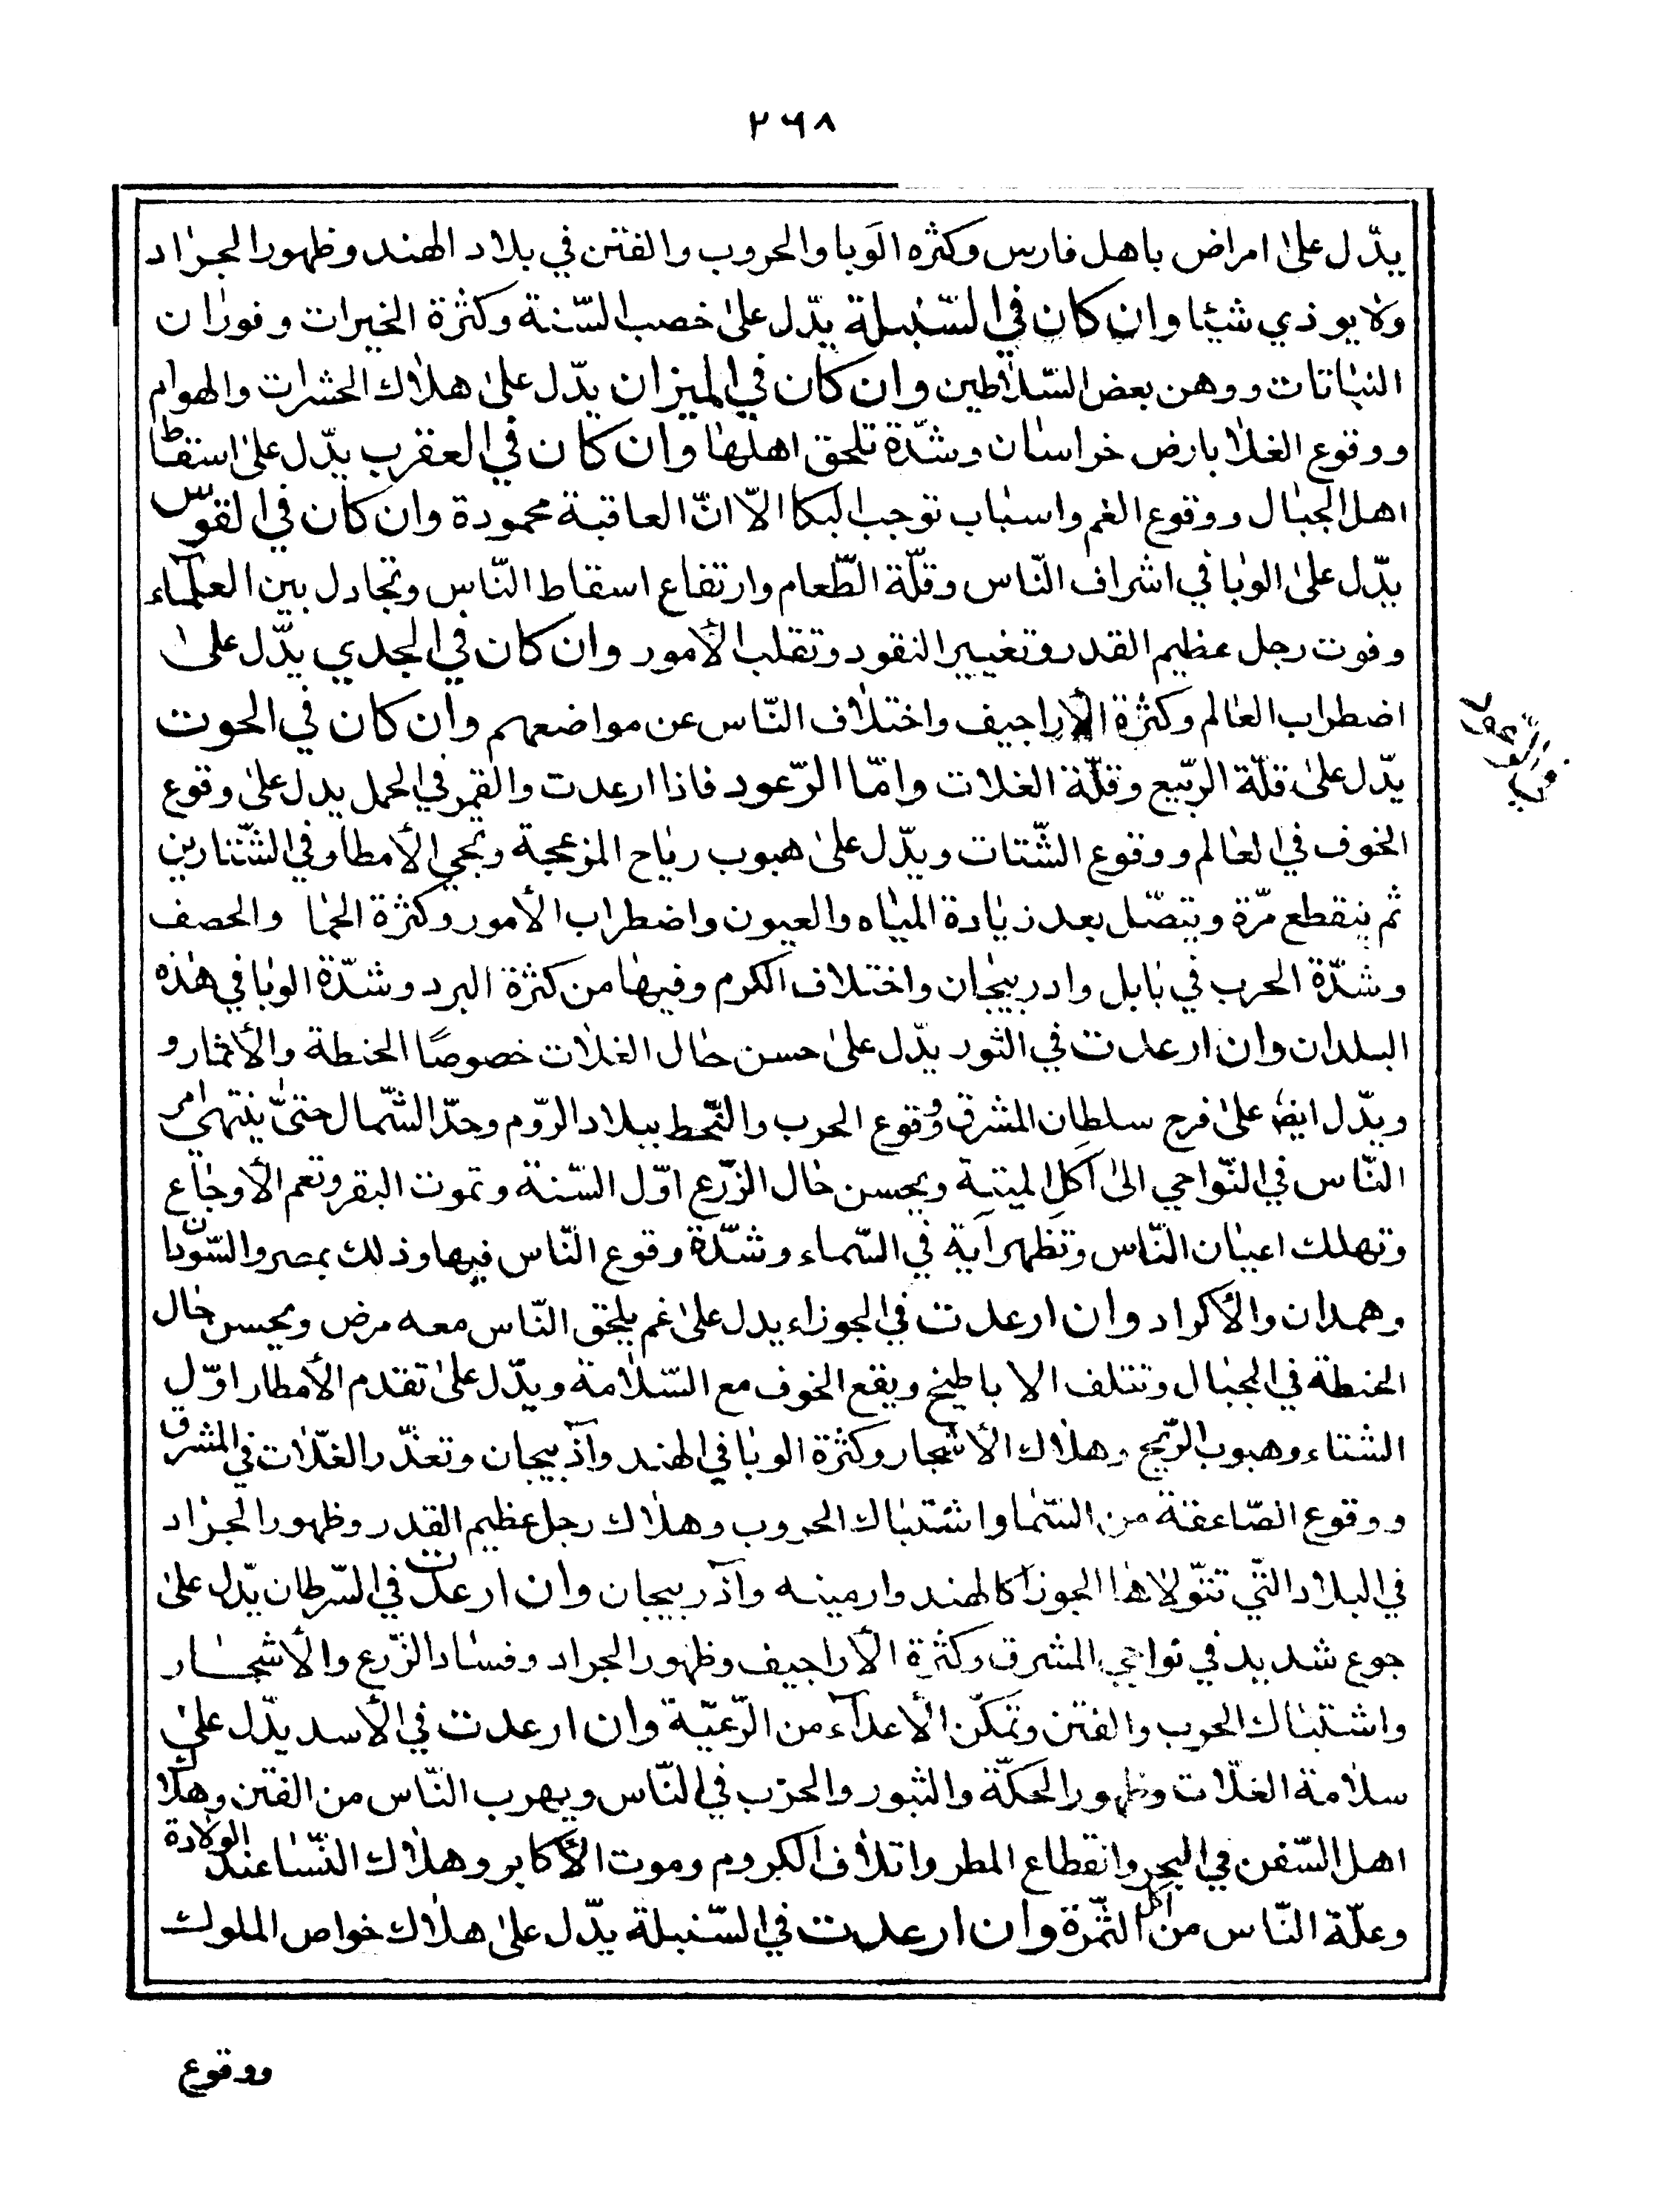 ٢٦٨
يدّل علىٰ امراض باهل فارس وكثره الوبا والحروب والفتن في بلاد الهند وظهور الجراد
ولا يوذي شيئا وان كان في السّنبلة يدّل علىٰ خصب السّنة وكثرة الخيرات وفوران
النباتات ووهن بعض السّلاطين وان كان في الميزان يدّل علىٰ هلاك الحشرات والهوام
ووقوع الغلا بارض خراسان وشدّة تلحق اهلها وان كان في العقرب يدّل علىٰ اسقاط
اهل الجبال ووقوع الغم واسباب توجب البكا الاّ انّ العاقبة محمودة وان كان في القوس
يدّل علىٰ الوبا في اشراف النّاس وقلّة الطّعام وارتفاع اسقاط النّاس وتجادل بين العلمآء
وفوت رجل عظيم القدر وتغيير النقود وتقلب الأمور وان كان في الجدي يدّل علىٰ
اضطراب العالم وكثرة الأراجيف واختلاف النّاس عن مواضعهم وان كان في الحوت
يدّل علىٰ قلّة الرّبيع وقلّة الغلات وامّا الرّعود فاذا ارعدت والقمر في الحمل يدل علىٰ وقوع
الخوف في العالم ووقوع الشّتات ويدّل علىٰ هبوب رياح المزعجة وتجي الأمطار في التشارين
ثم ينقطع مرّة ويتصّل بعد زيادة المياه والعيون واضطراب الأمور وكثرة الحما والحصف
وشدّة الحرب في بابل وادربيجان واختلاف الكرم وفيها من كثرة البرد وشدّة الوبا في هذه
البلدان وان ارعدت في الثور يدّل علىٰ حسن حال الغلات خصوصًا الحنطة والأثمار و
ويدّل ايضا علىٰ فرح سلطان المشرق ووقوع الحرب والقحط ببلاد الرّوم وحدّ الشّمال حتىّ ينتهي امر
النّاس في النّواحي الىٰ اكل الميتة ويحسن حال الزّرع اوّل السّنة وتموت البقر وتعم الأوجاع
وتهلك اعيان النّاس وتظهر آية في السّماء وشدّة وقوع النّاس فيها وذلك بمصر والسّودان
وهمدان والأكراد وان ارعدت في الجوزاء يدل علىٰ غم يلحق النّاس معه مرض ويحسن حال
الحنطة في الجبال وتتلف الاباطيخ ويقع الخوف مع السّلامة ويدّل علىٰ تقدم الأمطار اوّل
الشتاء وهبوب الرّيح وهلاك الأشجار وكثرة الوبا في الهند وآذربيجان وتعذّر الغلّات في المشرق
ووقوع الصّاعقة من السّما واشتباك الحروب وهلاك رجل عظيم القدر وظهور الجراد
في البلاد التّي تتولّاها الجوزآ كالهند وارمينه وآذربيجان وان ارعدت في السّرطان يدّل علىٰ
جوع شديد في نواحي المشرق وكثرة الأراجيف وظهور الجراد وفساد الزّرع والأشجار
واشتباك الحرب والفتن وتمكّن الأعدآء من الرّعيّة وان ارعدت في الأسد يدّل علىٰ
سلامة الغلّات وظهور الحكّة والثبور والحرّب في النّاس ويهرب النّاس من الفتن وهلاك
اهل السّفن في البحر وانقطاع المطر واتلاف الكروم وموت الأكابر وهلاك النّسا عند الولادة
وعلّة النّاس من اكل الثّمرة وان ارعدت في السّنبلة يدّل علىٰ هلاك خواص الملوك
ووقوع